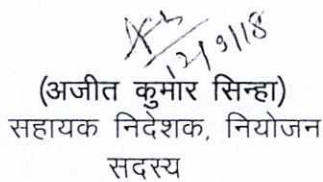 12/9/18
(अजीत कुमार सिन्हा)
सहायक निदेशक, नियोजन
सदस्य